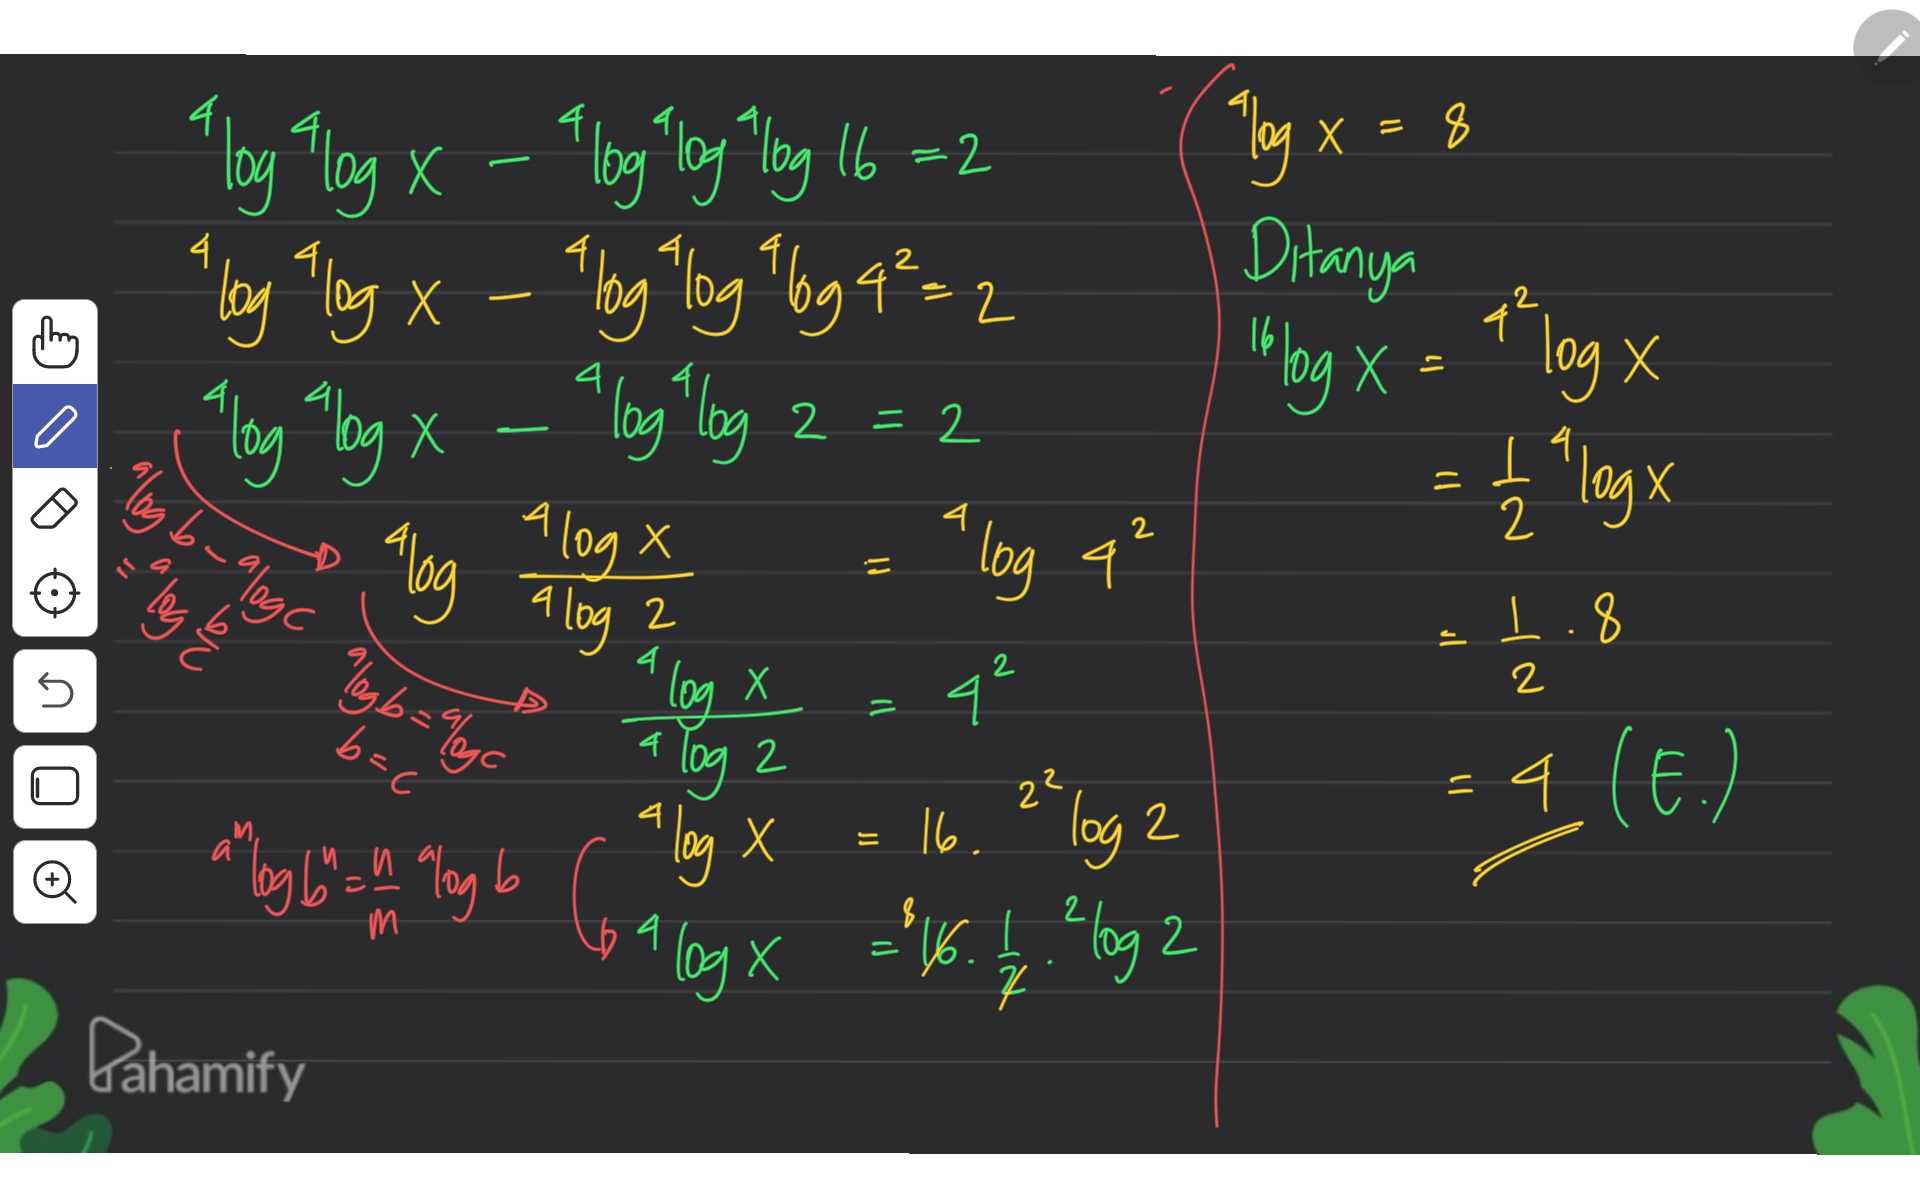 ⁴log ⁴log x − ⁴log ⁴log ⁴log 16 = 2
⁴log ⁴log x − ⁴log ⁴log ⁴log 4² = 2
⁴log ⁴log x − ⁴log ⁴log 2 = 2
ᵃlog b − ᵃlog c
= ᵃlog b/c
⁴log (⁴log x / ⁴log 2) = ⁴log 4²
ᵃlog b = ᵃlog c
b = c
⁴log x / ⁴log 2 = 4²
⁴log x = 16 . ^(2²)log 2
^(aᵐ)log bⁿ = n/m ᵃlog b
⁴log x = ⁸16 . 1/2 . ²log 2
⁴log x = 8
Ditanya
¹⁶log x = ^(4²)log x
= 1/2 ⁴log x
= 1/2 . 8
= 4 (E.)
Pahamify